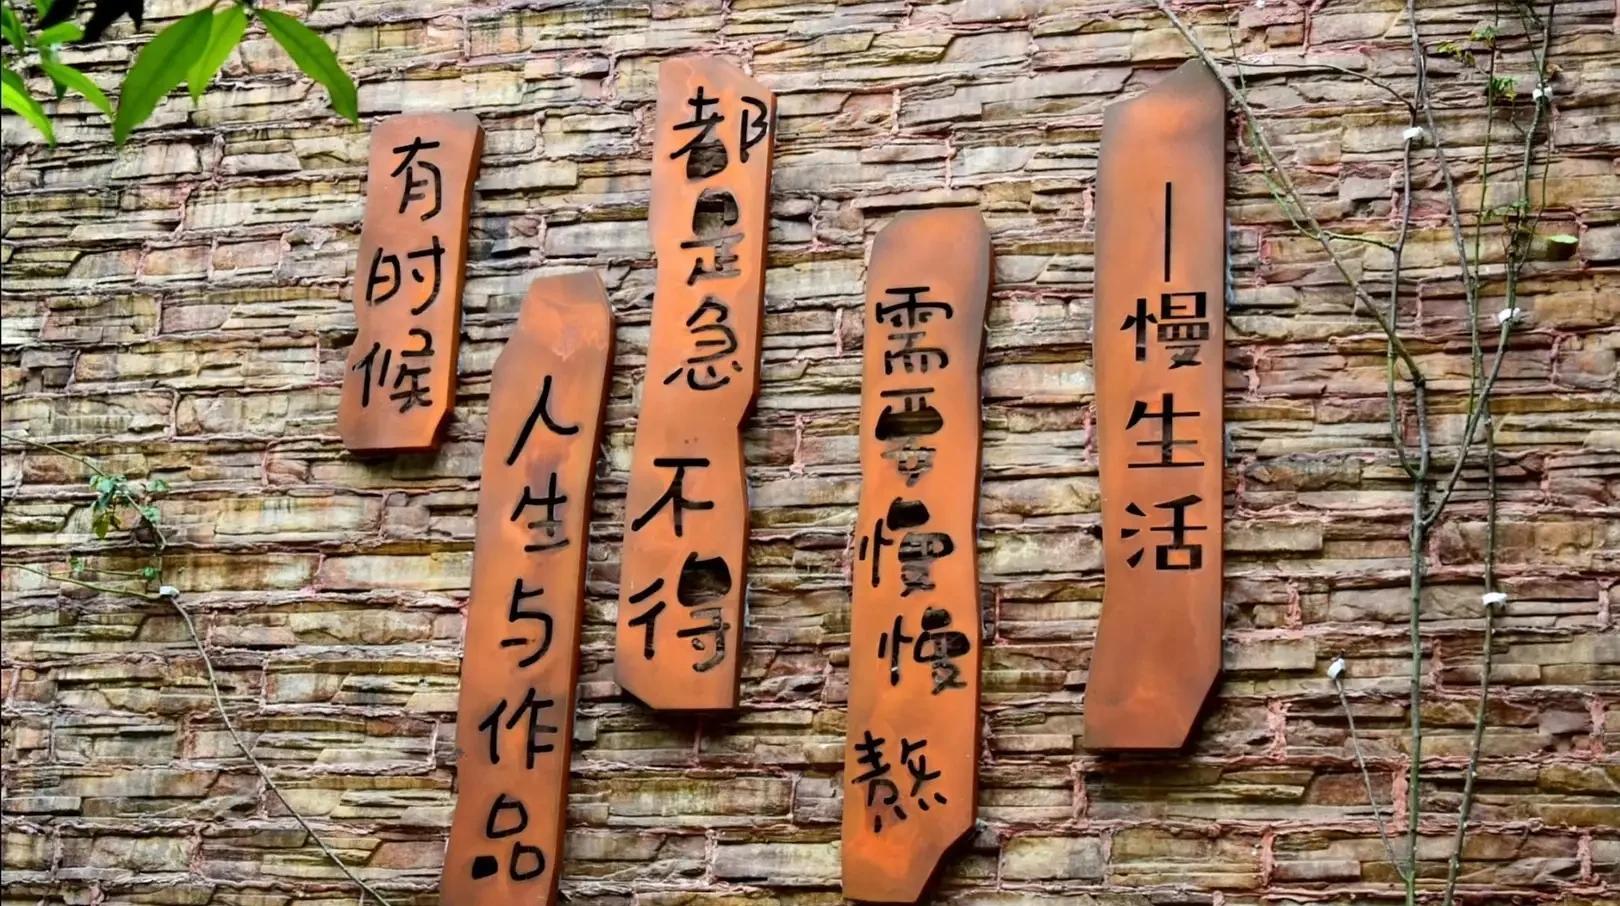 有时候
人生与作品
都是急不得
需要慢慢熬
—慢生活